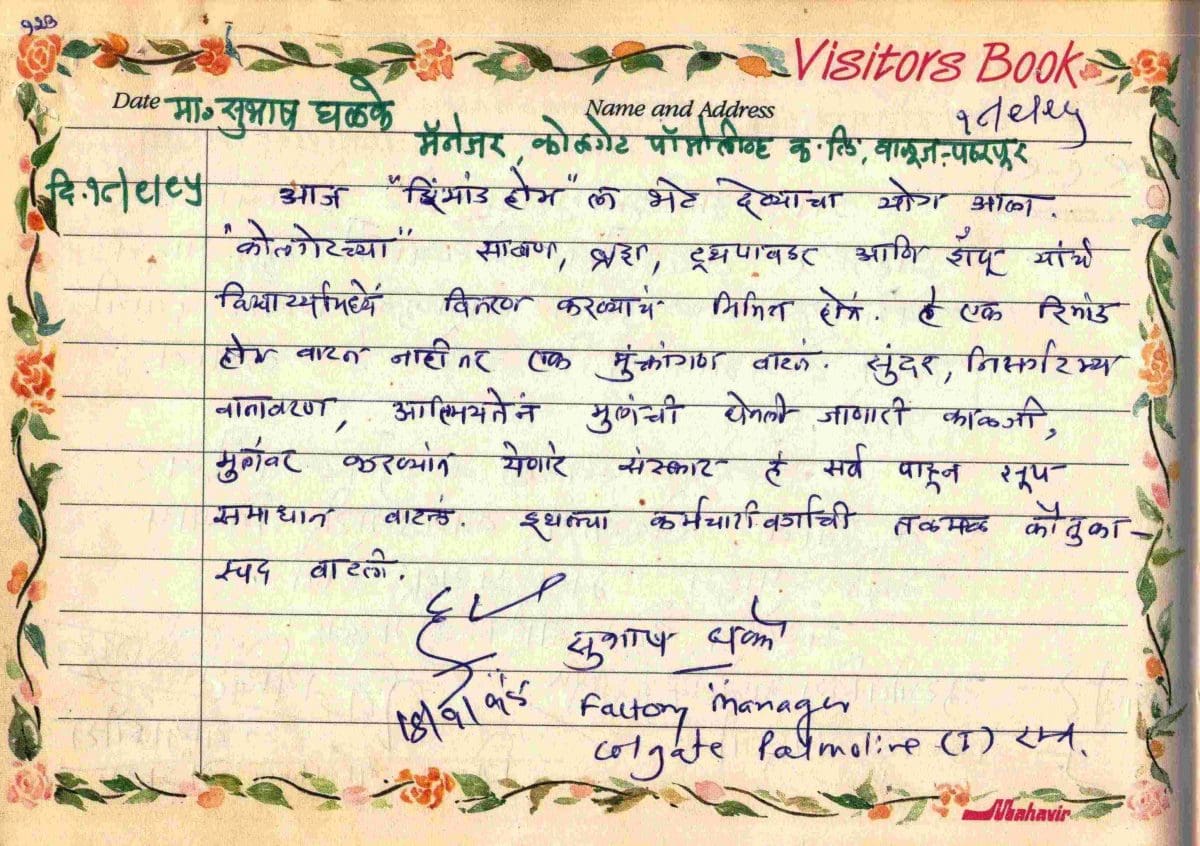 १२३
Visitors Book
Date मा. सुभाष घळके Name and Address १८/९/९५
मॅनेजर, कोलगेट पॉमोलीव्ह कं. लि, वाळूज-पंढरपूर
दि. १८/९/९५ आज "रिमांड होम" ला भेट देण्याचा योग आला.
"कोलगेटच्या" साबण, ब्रश, टूथपावडर आणि शँपू यांचे
विद्यार्थ्यांमध्ये वितरण करण्याचं निमित्त होतं. हे एक रिमांड
होम वाटत नाही तर एक मुक्तांगण वाटलं. सुंदर, निसर्गरम्य
वातावरण, आत्मियतेनं मुलांची घेतली जाणारी काळजी,
मुलांवर करण्यांत येणारे संस्कार हे सर्व पाहून खूप
समाधान वाटलं. इथल्या कर्मचारी वर्गाची तळमळ कौतुका-
स्पद वाटली.
सुभाष घळके
18/9/95 Factory Manager
Colgate Palmolive (I)
Mahavir